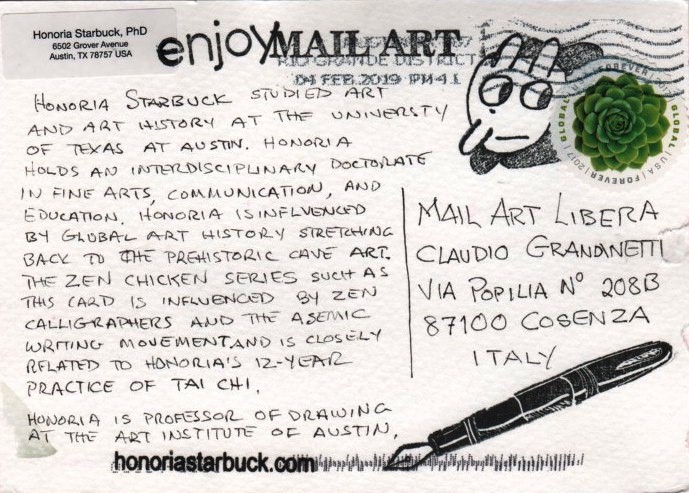 Honoria Starbuck, PhD
6502 Grover Avenue
Austin, TX 78757 USA
enjoy MAIL ART
RIO GRANDE DISTRICT
04 FEB 2019 PM 4 L
FOREVER
GLOBAL
GLOBAL | USA | FOREVER | 2017
HONORIA STARBUCK STUDIED ART
AND ART HISTORY AT THE UNIVERSTY
OF TEXAS AT AUSTIN. HONORIA
HOLDS AN INTERDISCIPLINARY DOCTORATE
IN FINE ARTS, COMMUNICATION, AND
EDUCATION. HONORIA IS INFLUENCED
BY GLOBAL ART HISTORY STRETCHING
BACK TO THE PREHISTORIC CAVE ART.
THE ZEN CHICKEN SERIES SUCH AS
THIS CARD IS INFLUENCED BY ZEN
CALLIGRAPHERS AND THE ASEMIC
WRITING MOVEMENT AND IS CLOSELY
RELATED TO HONORIA'S 12-YEAR
PRACTICE OF TAI CHI.
HONORIA IS PROFESSOR OF DRAWING
AT THE ART INSTITUTE OF AUSTIN,
honoriastarbuck.com
MAIL ART LIBERA
CLAUDIO GRANDINETTI
VIA POPILIA Nº 208B
87100 COSENZA
ITALY